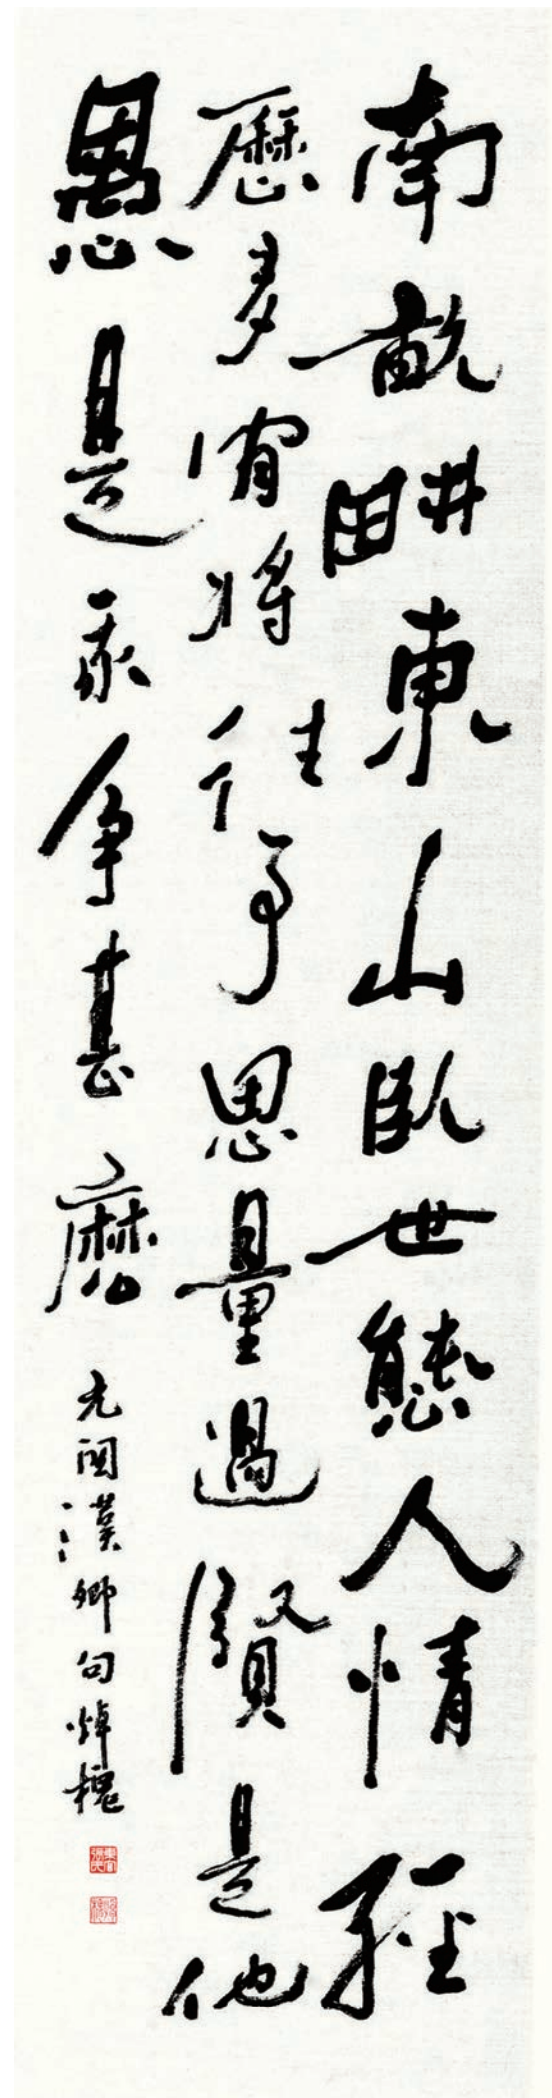 南畝畊東山臥世態人情經
歷多閒將往事思量過賢是他
愚是我争甚麽
元關漢卿句焯槐